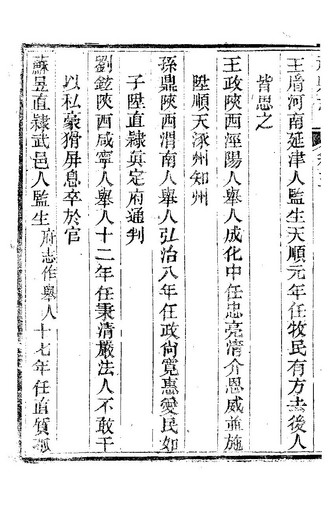 王㞐河南延津人監生天順元年任牧民有方去後人
皆思之
王政陝西涇陽人舉人成化中任忠亮清介恩威並施
陞順天涿州知州
孫鼎陝西渭南人舉人弘治八年任政尚寬惠愛民如
子陞直隸真定府通判
劉鉉陝西咸寧人舉人十二年任秉清嚴法人不敢干
以私豪猾屏息卒於官
蘇昱直隸武邑人監生府志作舉人十七年任直質